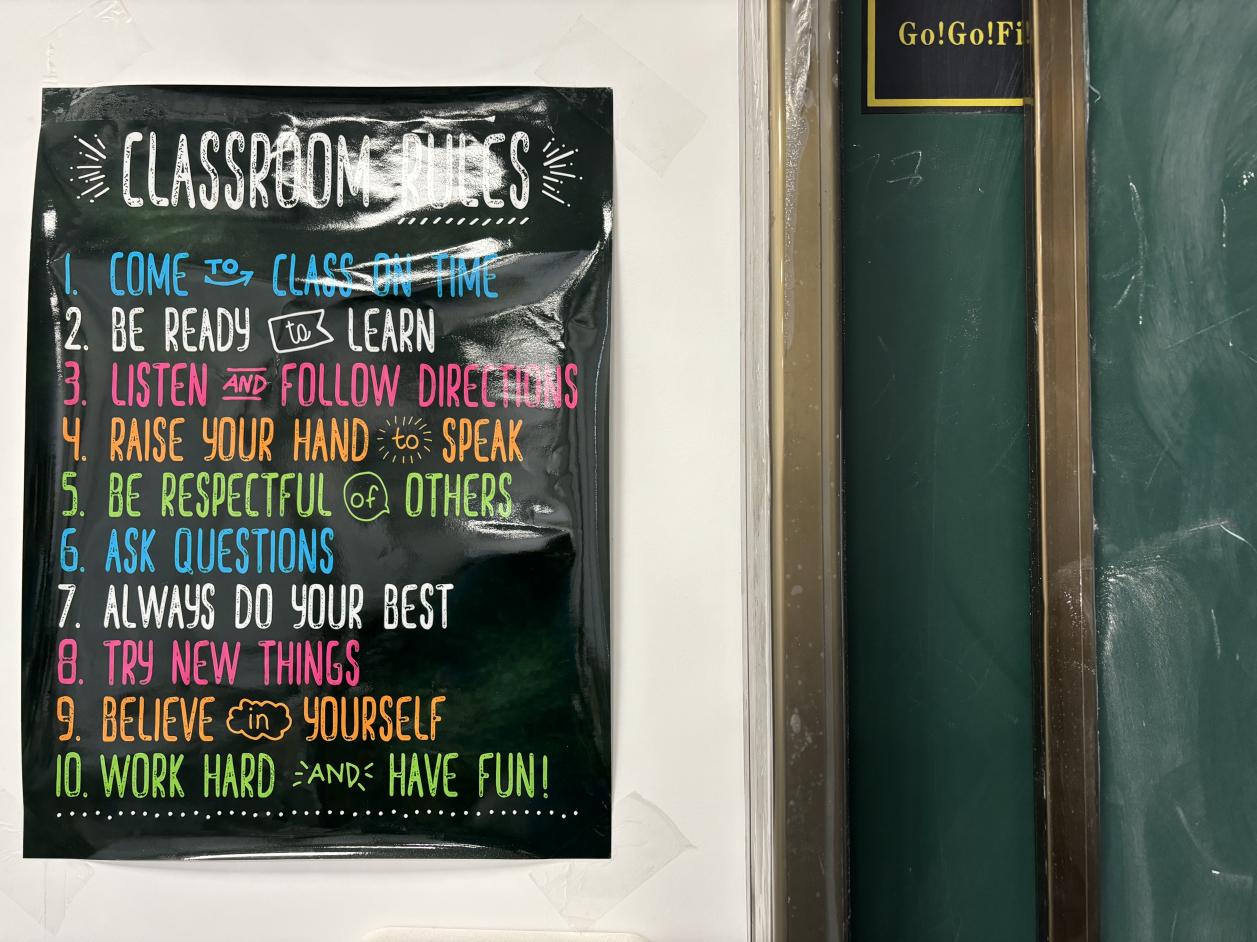 CLASSROOM RULES
1. COME TO CLASS ON TIME
2. BE READY to LEARN
3. LISTEN AND FOLLOW DIRECTIONS
4. RAISE YOUR HAND to SPEAK
5. BE RESPECTFUL of OTHERS
6. ASK QUESTIONS
7. ALWAYS DO YOUR BEST
8. TRY NEW THINGS
9. BELIEVE in YOURSELF
10. WORK HARD AND HAVE FUN!
Go!Go!Fi